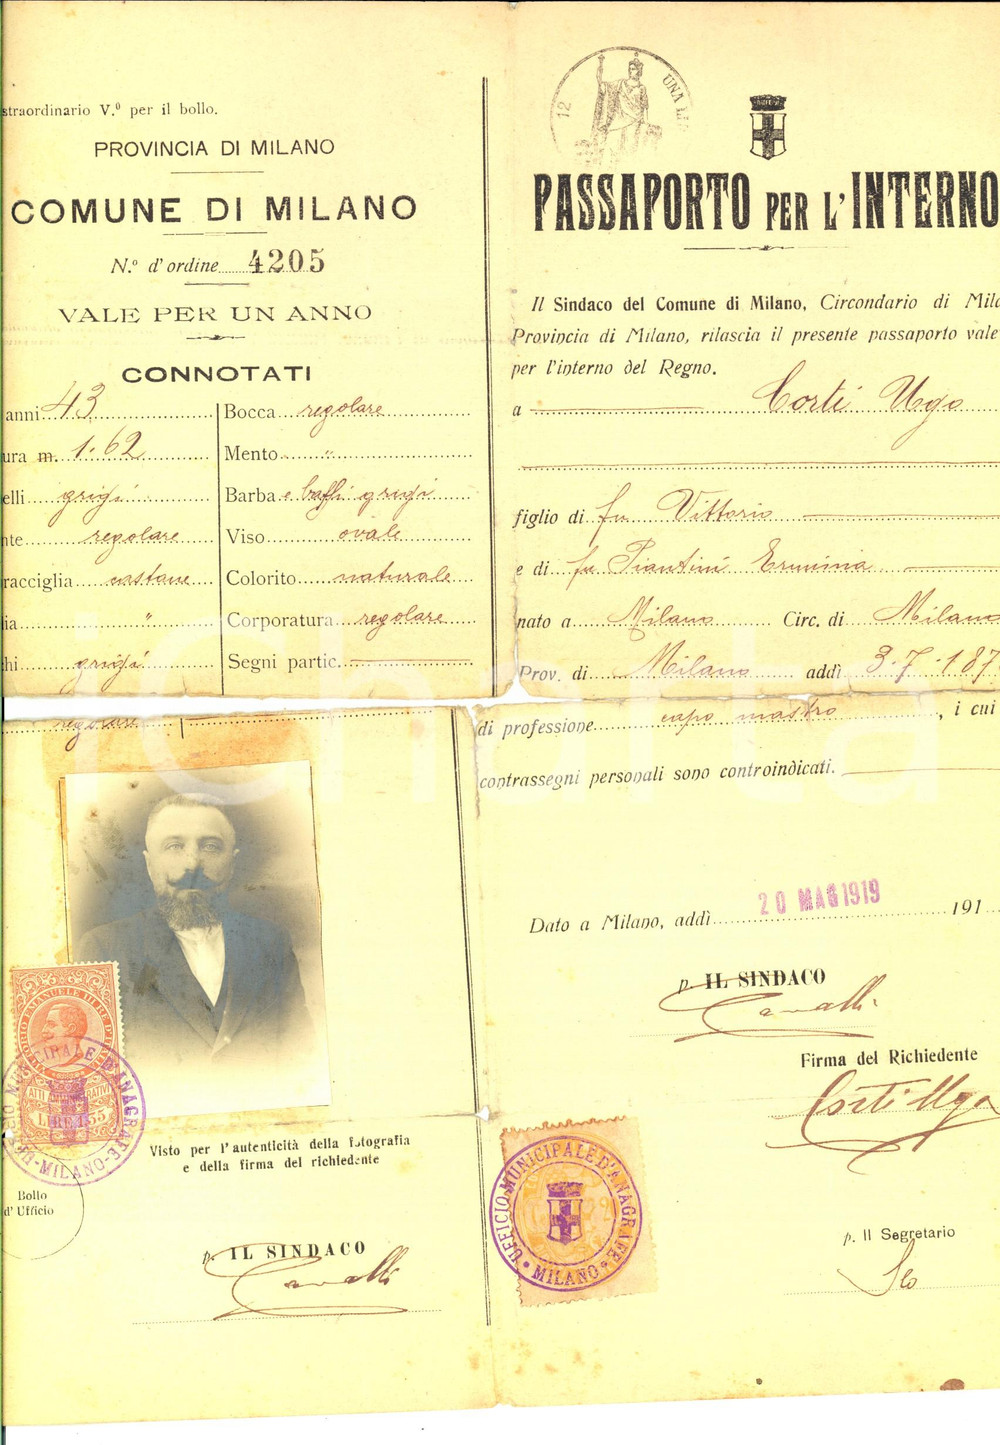 straordinario V.º per il bollo.
PROVINCIA DI MILANO
COMUNE DI MILANO
N.º d'ordine 4205
VALE PER UN ANNO
CONNOTATI
anni 43
ura m. 1.62
elli grigi
nte regolare
racciglia castane
ia "
hi grigi
regolare
Bocca regolare
Mento "
Barba e baffi grigi
Viso ovale
Colorito naturale
Corporatura regolare
Segni partic.
VITTORIO EMANUELE III RE D'ITALIA
ATTI AMMINISTRATIVI
LIRE 1.55
UFFICIO MUNICIPALE D'ANAGRAFE - MILANO -
Bollo
d' Ufficio
Visto per l'autenticità della fotografia
e della firma del richiedente
p. IL SINDACO
Cavalli
12
UNA LI
PASSAPORTO PER L'INTERNO
Il Sindaco del Comune di Milano, Circondario di Mila
Provincia di Milano, rilascia il presente passaporto vale
per l'interno del Regno.
a Corti Ugo
figlio di fu Vittorio
e di fu Piantini Erminia
nato a Milano Circ. di Milano
Prov. di Milano addì 3.7.187
di professione capo mastro, i cui
contrassegni personali sono controindicati.
Dato a Milano, addì 20 MAG 1919 191
p. IL SINDACO
Cavalli
Firma del Richiedente
Corti Ugo
UFFICIO MUNICIPALE D'ANAGRAFE
• MILANO •
p. Il Segretario